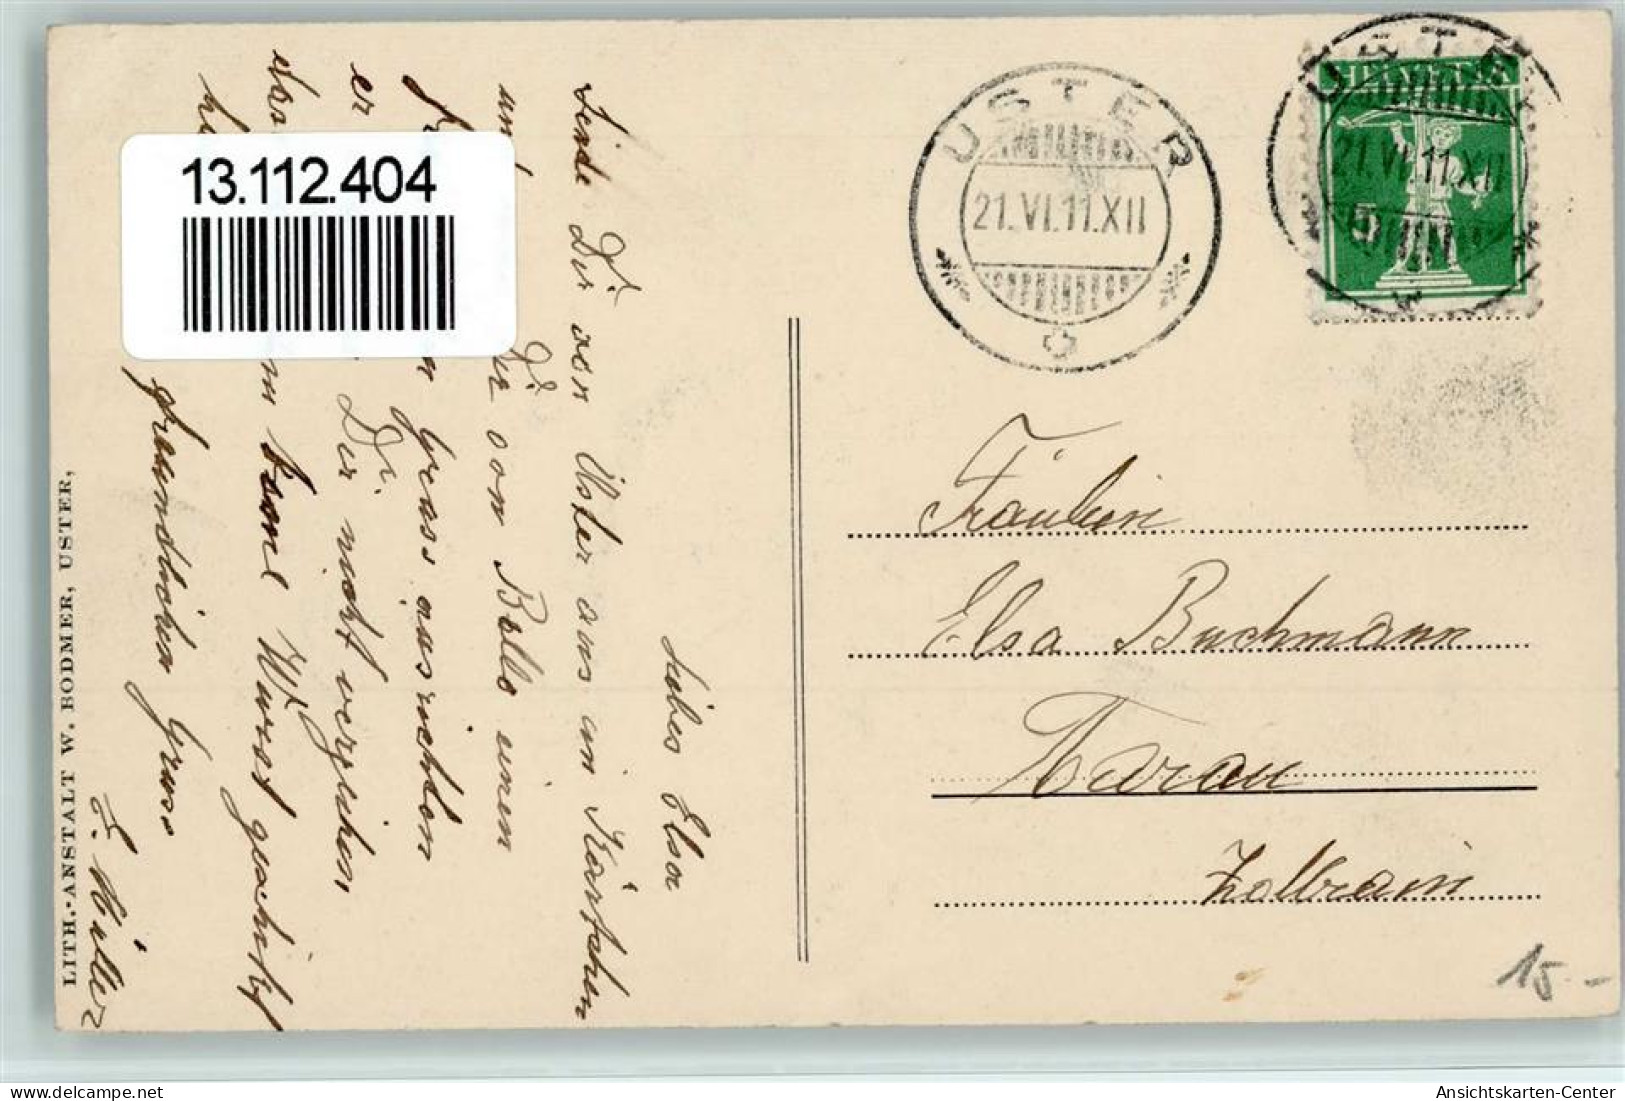 13.112.404
USTER
21.VI.11.XII
USTER
21.VI.11.XII
HELVETIA
5
Liebes Elsa
Sende Dir von Uster aus ein Kärtchen
und Dir von Bello einen
Gruss ausrichten
er Dir nicht verzeihen,
das Wurst geschickt
freundlichen Gruss
E. Müller
Fräulein
Elsa Buchmann
Aarau
Zollrain
15.-
LITH.-ANSTALT W. BODMER, USTER,
Ansichtskarten-Center